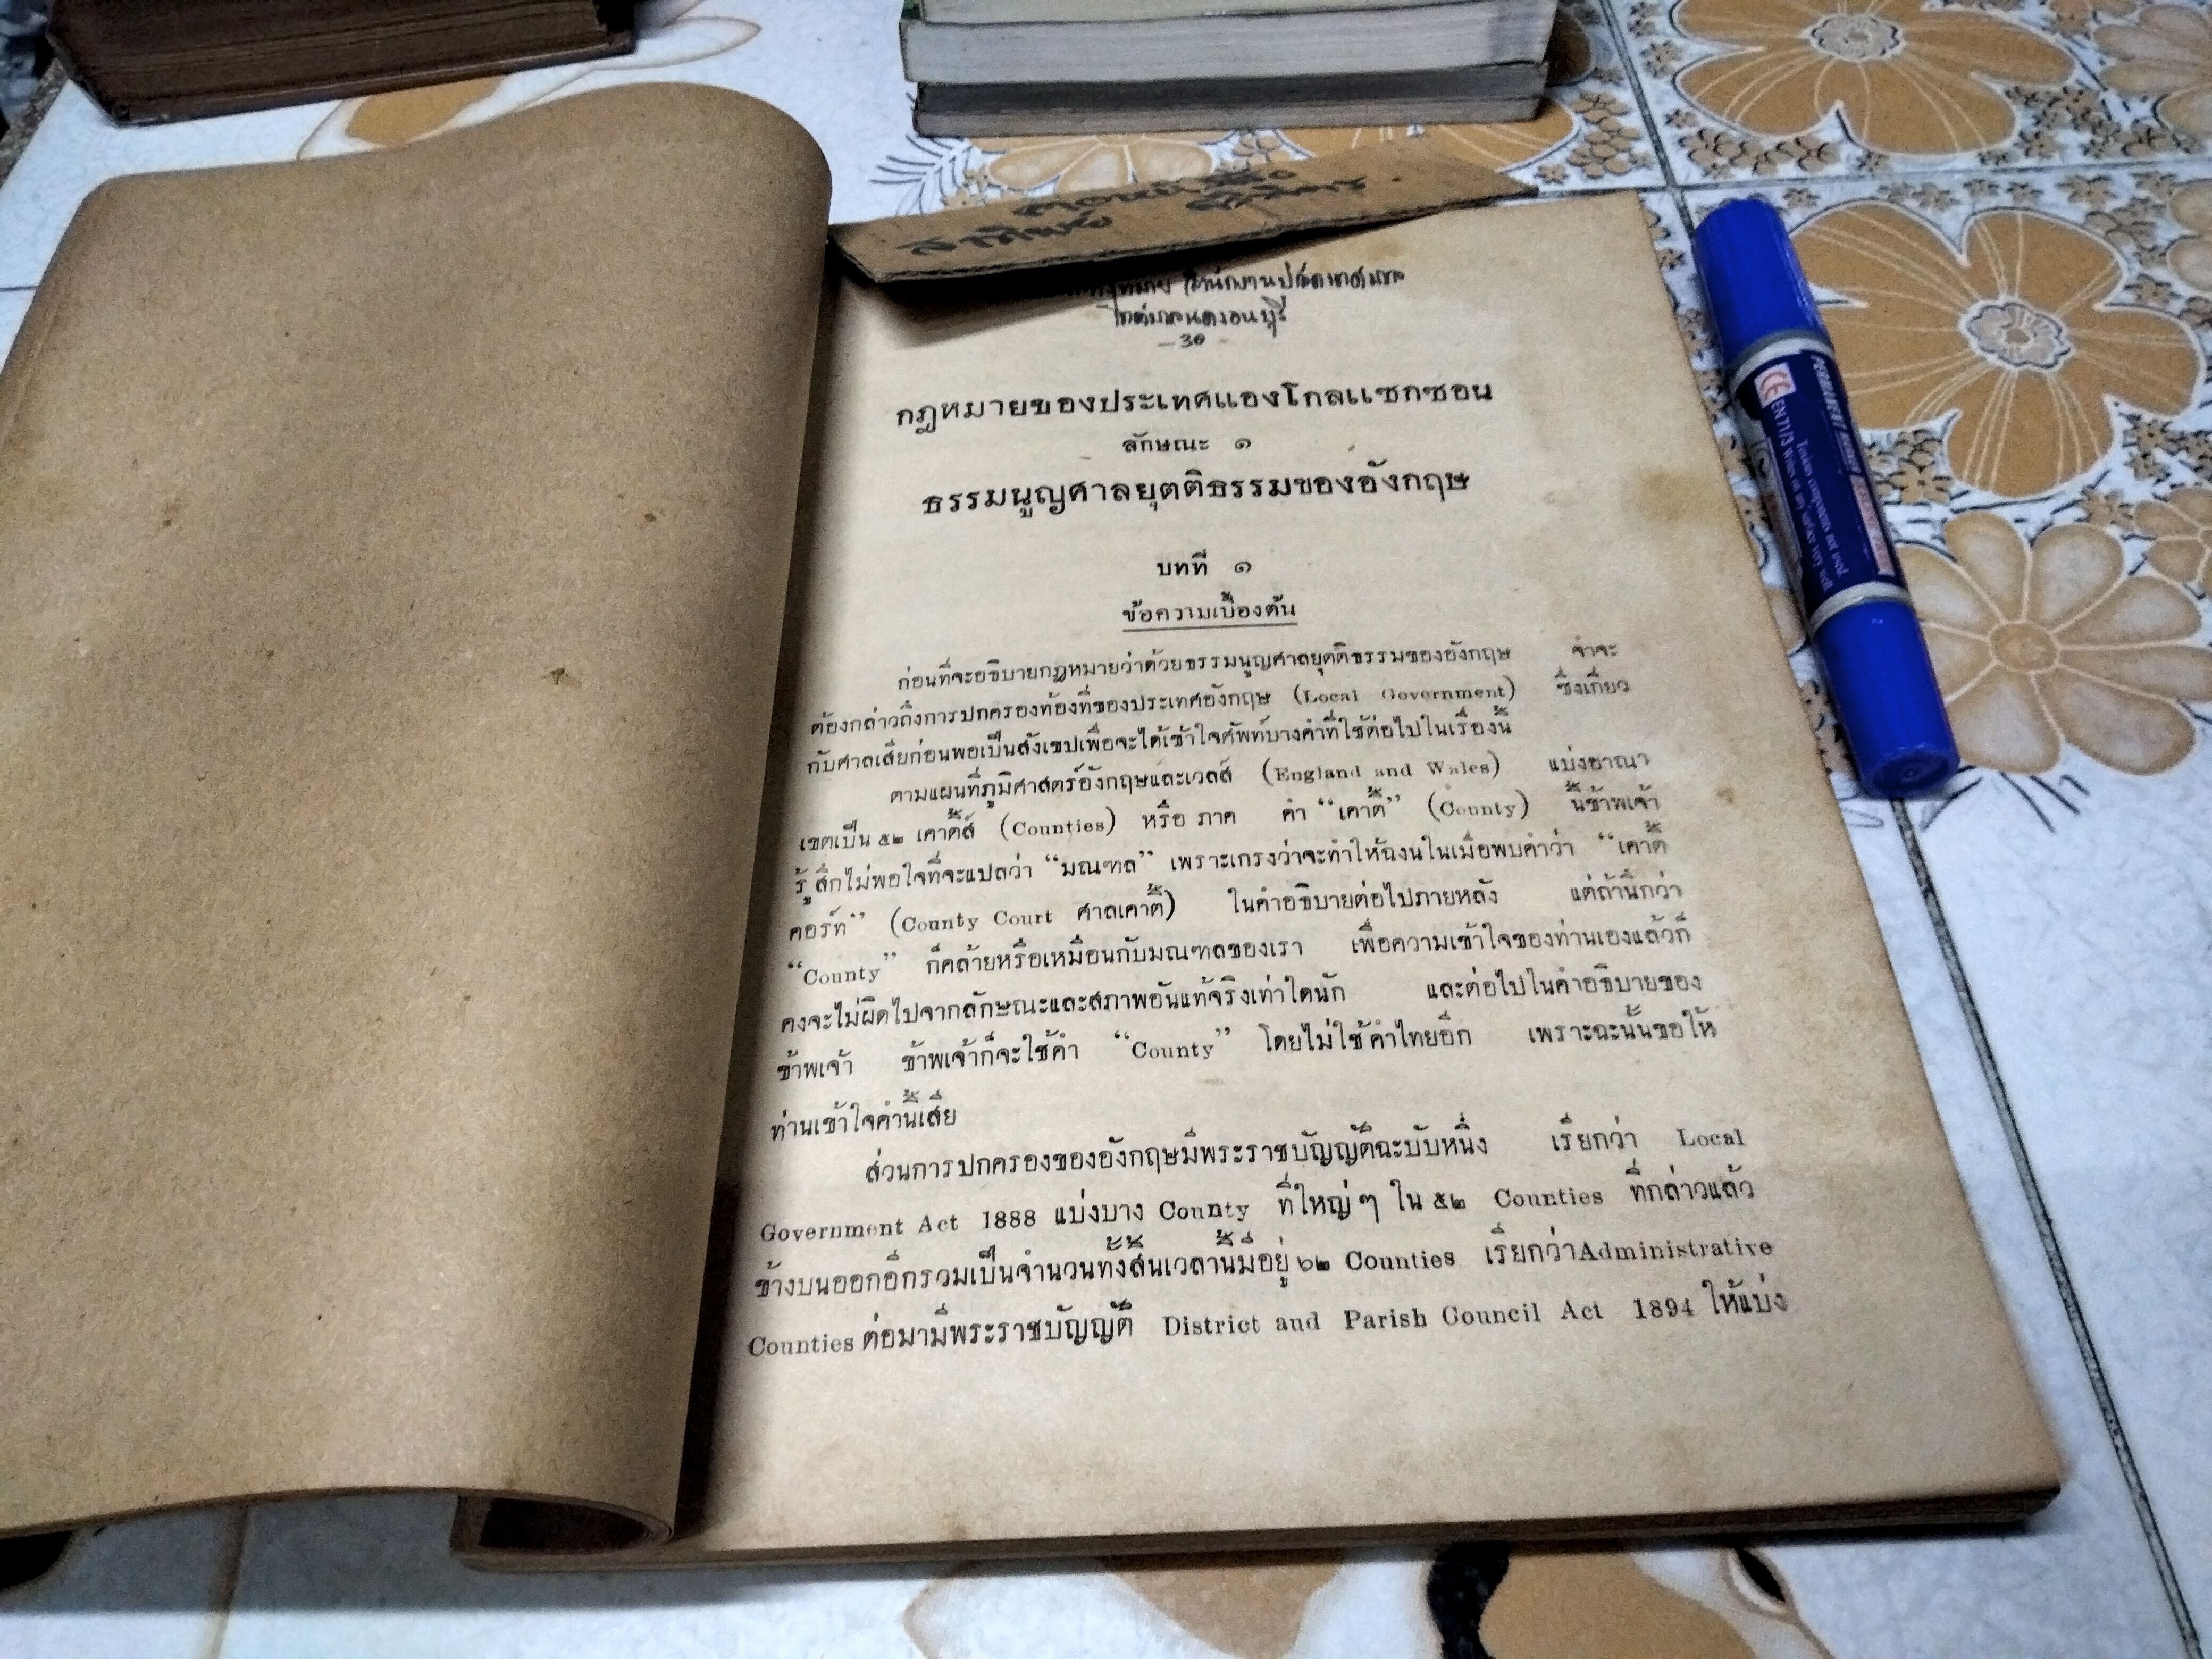 สำนักงานปลัดเทศบาล
- 30 -
กฎหมายของประเทศแองโกลแซกซอน
ลักษณะ ๑
ธรรมนูญศาลยุตติธรรมของอังกฤษ
บทที่ ๑
ข้อความเบื้องต้น
ก่อนที่จะอธิบายกฎหมายว่าด้วยธรรมนูญศาลยุตติธรรมของอังกฤษ จำจะ
ต้องกล่าวถึงการปกครองท้องที่ของประเทศอังกฤษ (Local Government) ซึ่งเกี่ยว
กับศาลเสียก่อนพอเป็นสังเขปเพื่อจะได้เข้าใจศัพท์บางคำที่ใช้ต่อไปในเรื่องนี้
ตามแผนที่ภูมิศาสตร์อังกฤษและเวลส์ (England and Wales) แบ่งอาณา
เขตเป็น ๕๒ เคาตี้ส์ (Counties) หรือ ภาค คำ “เคาตี้” (County) นี้ข้าพเจ้า
รู้สึกไม่พอใจที่จะแปลว่า “มณฑล” เพราะเกรงว่าจะทำให้ฉงนในเมื่อพบคำว่า “เคาตี้
คอร์ท” (County Court ศาลเคาตี้) ในคำอธิบายต่อไปภายหลัง แต่ถ้านึกว่า
“County” ก็คล้ายหรือเหมือนกับมณฑลของเรา เพื่อความเข้าใจของท่านเองแล้วก็
คงจะไม่ผิดไปจากลักษณะและสภาพอันแท้จริงเท่าใดนัก และต่อไปในคำอธิบายของ
ข้าพเจ้า ข้าพเจ้าก็จะใช้คำ “County” โดยไม่ใช้คำไทยอีก เพราะฉะนั้นขอให้
ท่านเข้าใจคำนี้เสีย
ส่วนการปกครองของอังกฤษมีพระราชบัญญัติฉะบับหนึ่ง เรียกว่า Local
Government Act 1888 แบ่งบาง County ที่ใหญ่ ๆ ใน ๕๒ Counties ที่กล่าวแล้ว
ข้างบนออกอีกรวมเป็นจำนวนทั้งสิ้นเวลานี้มีอยู่ ๖๒ Counties เรียกว่า Administrative
Counties ต่อมามีพระราชบัญญัติ District and Parish Council Act 1894 ให้แบ่ง
PERMANENT MARKER
CE
EN 71/3